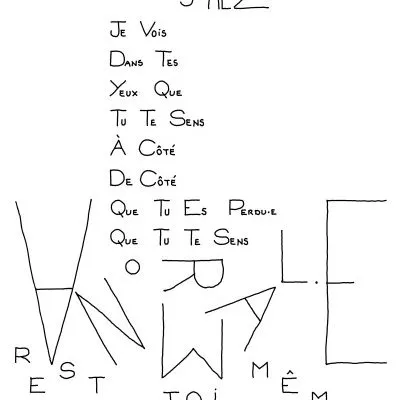 JE VOIS
DANS TES
YEUX QUE
TU TE SENS
À CÔTÉ
DE CÔTÉ
QUE TU ES PERDU·E
QUE TU TE SENS
ANORMAL·E
REST TOI MÊM